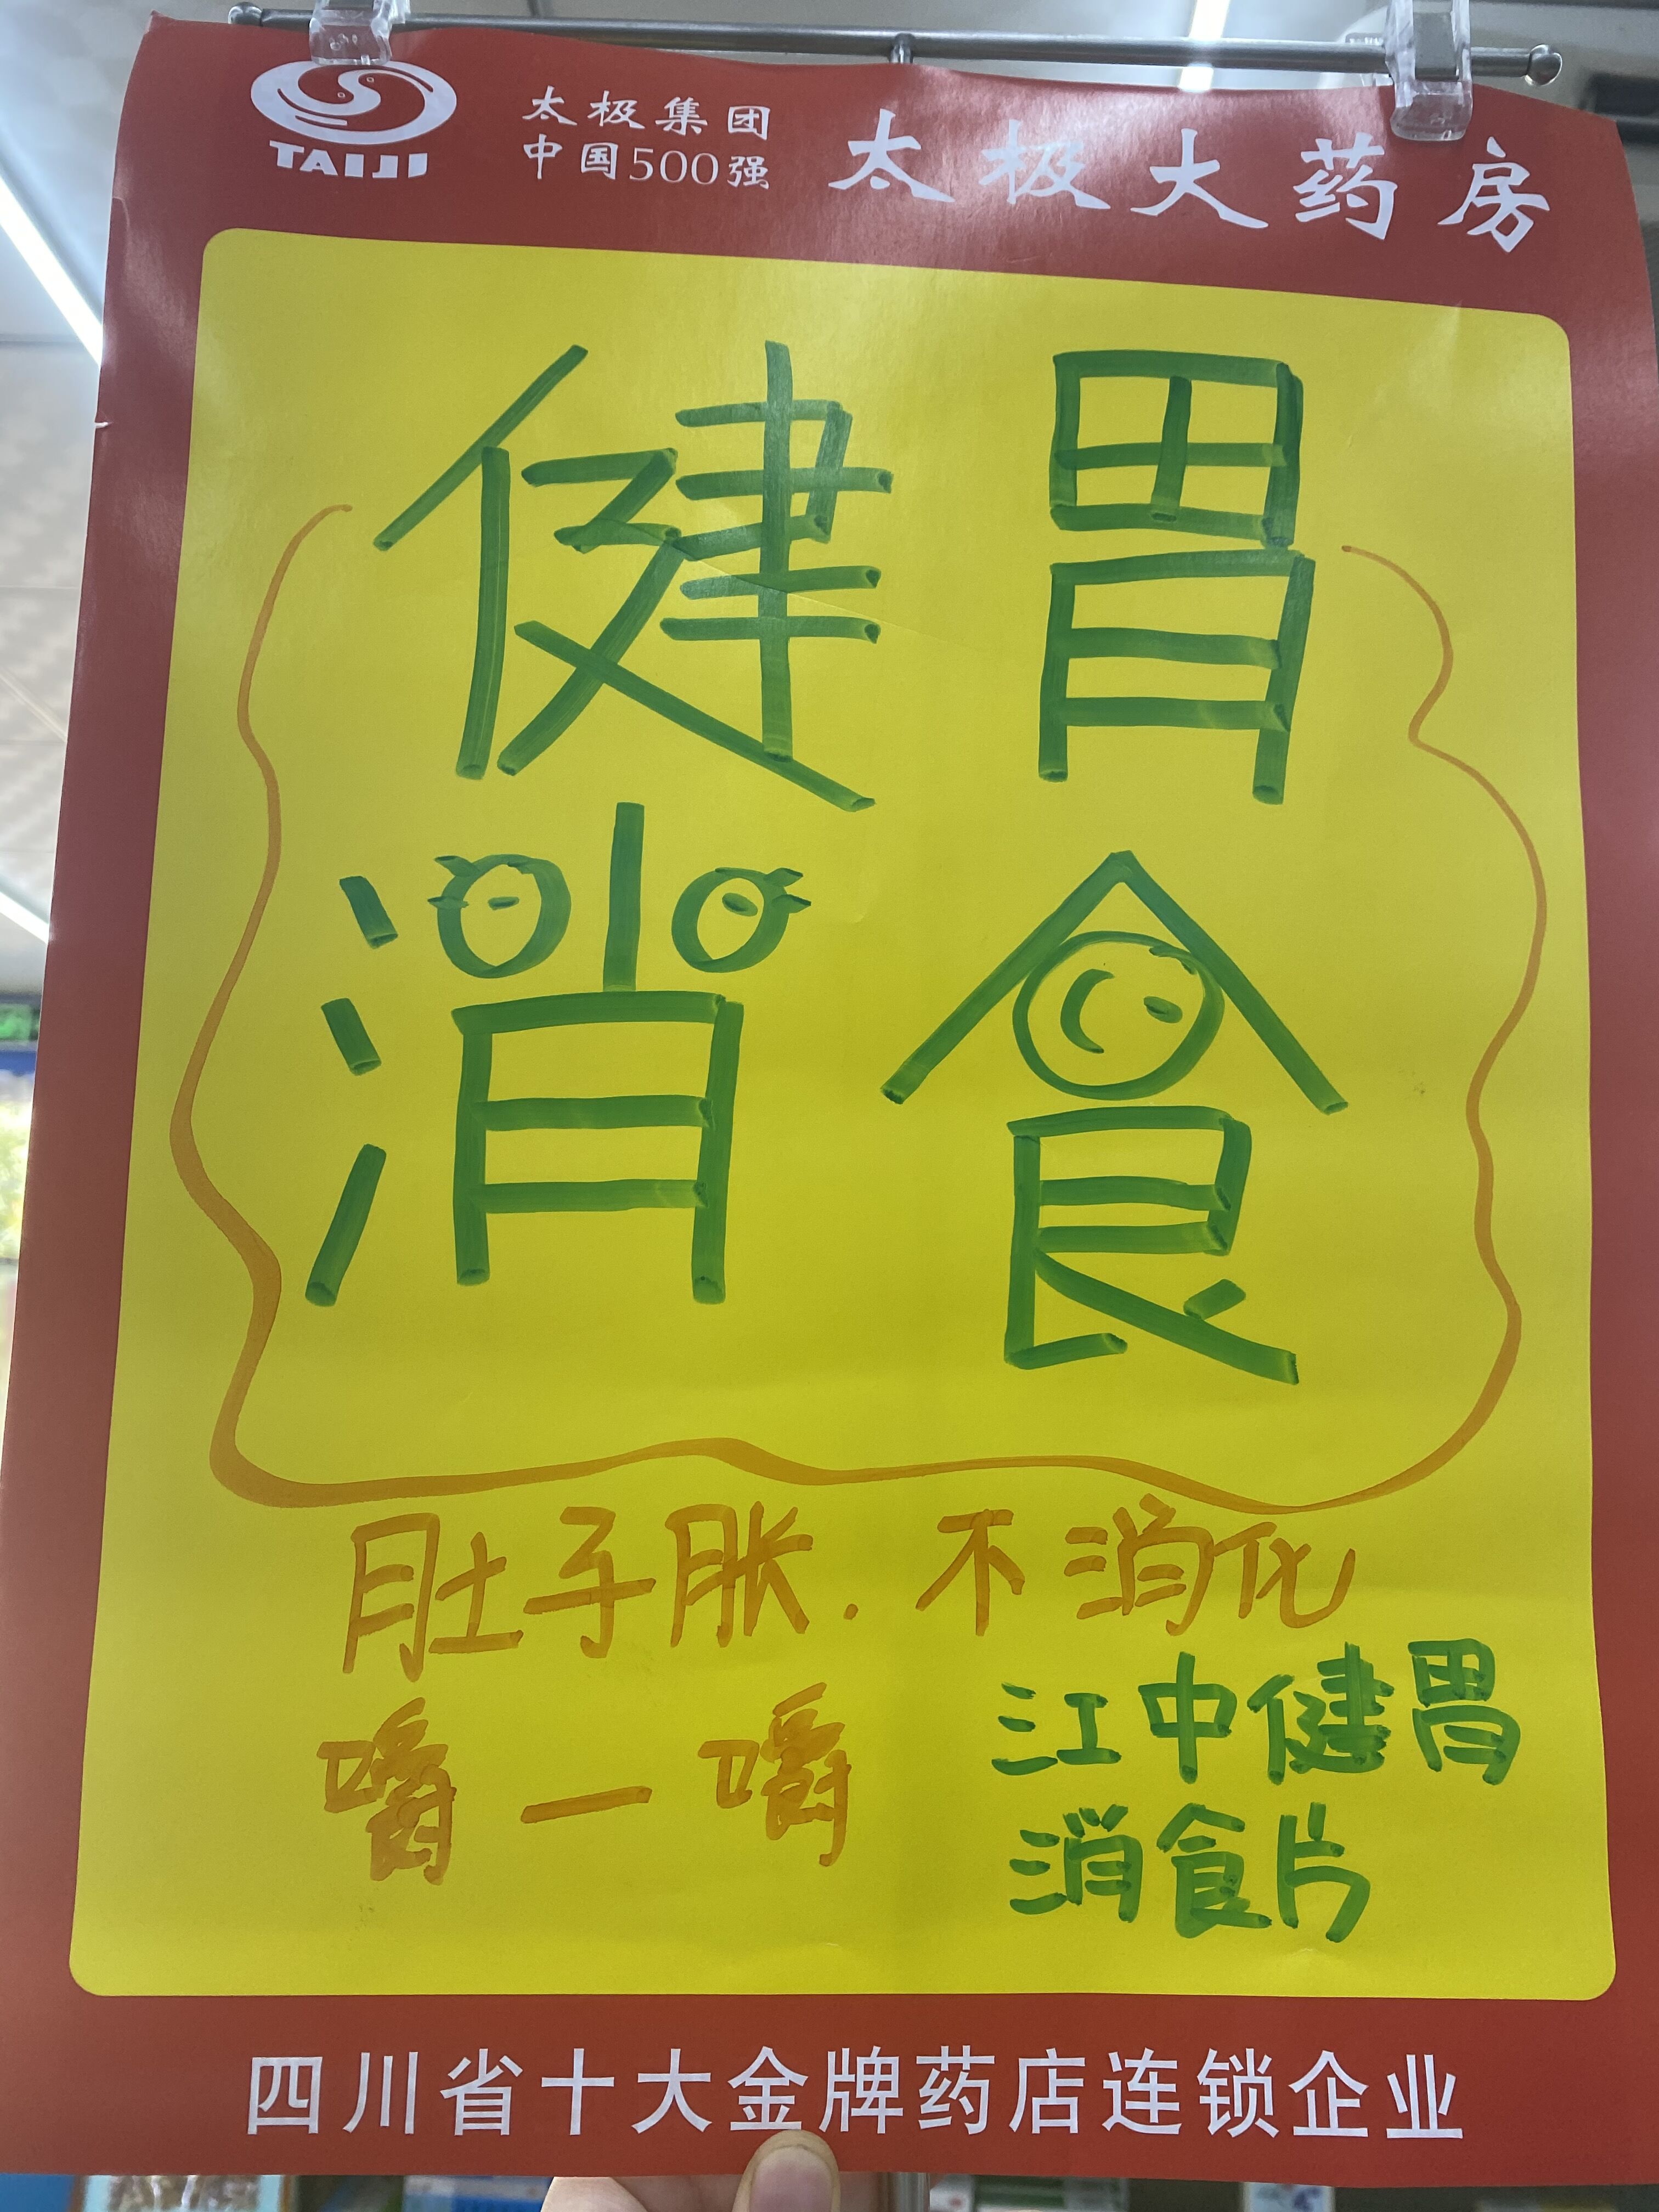 TAIJI
太极集团
中国500强
太极大药房
健胃
消食
肚子胀.不消化
嚼一嚼
江中健胃
消食片
四川省十大金牌药店连锁企业